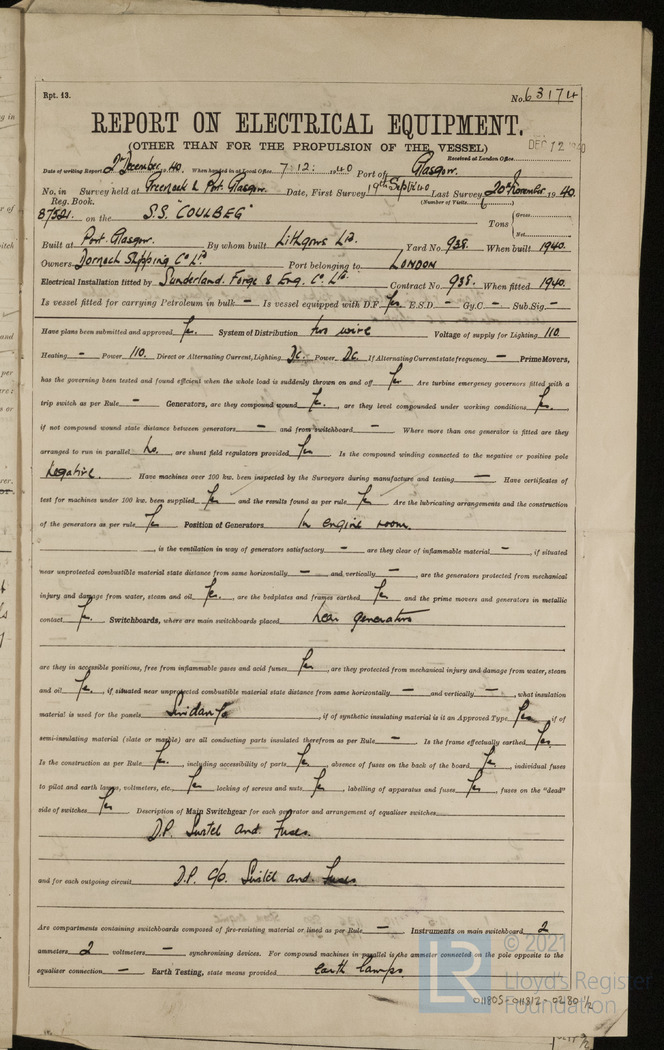 Rpt. 13.
No. 63174
REPORT ON ELECTRICAL EQUIPMENT.
(OTHER THAN FOR THE PROPULSION OF THE VESSEL)
Received at London Office DEC 12 1940
Date of writing Report 2nd December 1940. When handed in at Local Office 7:12:1940 Port of Glasgow.
No. in Survey held at Greenock & Port Glasgow. Date, First Survey 19th Sept 1940 Last Survey 20th November 1940.
Reg. Book. (Number of Visits 8)
87521. on the S.S. "COULBEG" Tons { Gross Net
Built at Port Glasgow. By whom built Lithgows Ld. Yard No. 938. When built 1940.
Owners Dornoch Shipping Co Ld Port belonging to LONDON
Electrical Installation fitted by Sunderland Forge & Eng. Co. Ld. Contract No. 938. When fitted 1940.
Is vessel fitted for carrying Petroleum in bulk - Is vessel equipped with D.F. Yes. E.S.D. - Gy.C. - Sub.Sig. -
Have plans been submitted and approved Yes. System of Distribution two wire Voltage of supply for Lighting 110
Heating - Power 110. Direct or Alternating Current, Lighting D.C. Power D.C. If Alternating Current state frequency - Prime Movers,
has the governing been tested and found efficient when the whole load is suddenly thrown on and off Yes Are turbine emergency governors fitted with a
trip switch as per Rule - Generators, are they compound wound Yes., are they level compounded under working conditions Yes.,
if not compound wound state distance between generators - and from switchboard - Where more than one generator is fitted are they
arranged to run in parallel No., are shunt field regulators provided Yes Is the compound winding connected to the negative or positive pole
Negative. Have machines over 100 kw. been inspected by the Surveyors during manufacture and testing - Have certificates of
test for machines under 100 kw. been supplied Yes and the results found as per rule Yes Are the lubricating arrangements and the construction
of the generators as per rule Yes Position of Generators In engine room.
, is the ventilation in way of generators satisfactory - are they clear of inflammable material -, if situated
near unprotected combustible material state distance from same horizontally - and vertically -, are the generators protected from mechanical
injury and damage from water, steam and oil Yes., are the bedplates and frames earthed Yes and the prime movers and generators in metallic
contact Yes. Switchboards, where are main switchboards placed Near generators
are they in accessible positions, free from inflammable gases and acid fumes Yes, are they protected from mechanical injury and damage from water, steam
and oil Yes., if situated near unprotected combustible material state distance from same horizontally - and vertically -, what insulation
material is used for the panels Sindanyo, if of synthetic insulating material is it an Approved Type Yes, if of
semi-insulating material (slate or marble) are all conducting parts insulated therefrom as per Rule - Is the frame effectually earthed Yes.
Is the construction as per Rule Yes., including accessibility of parts Yes, absence of fuses on the back of the board Yes, individual fuses
to pilot and earth lamps, voltmeters, etc. Yes locking of screws and nuts Yes, labelling of apparatus and fuses Yes, fuses on the "dead"
side of switches Yes Description of Main Switchgear for each generator and arrangement of equaliser switches
D.P. Switch and Fuses.
and for each outgoing circuit D.P. C/O. Switch and Fuses.
Are compartments containing switchboards composed of fire-resisting material or lined as per Rule - Instruments on main switchboard 2
ammeters 2 voltmeters - synchronising devices. For compound machines in parallel is the ammeter connected on the pole opposite to the
equaliser connection - Earth Testing, state means provided earth lamps.
LR
© 2021
Lloyd's Register
Foundation
011805-011812-0280 1/2